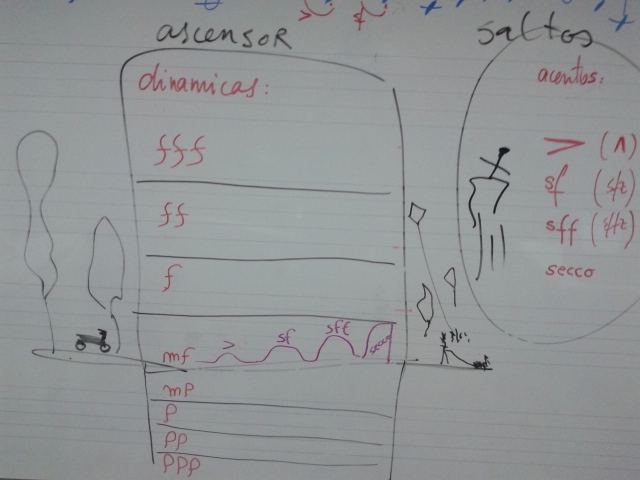 ascensor
dinamicas:
fff
ff
f
mf > sf sff secco
mp
p
pp
ppp
saltos
acentos:
> (Λ)
sf (sfz)
sff (sffz)
secco